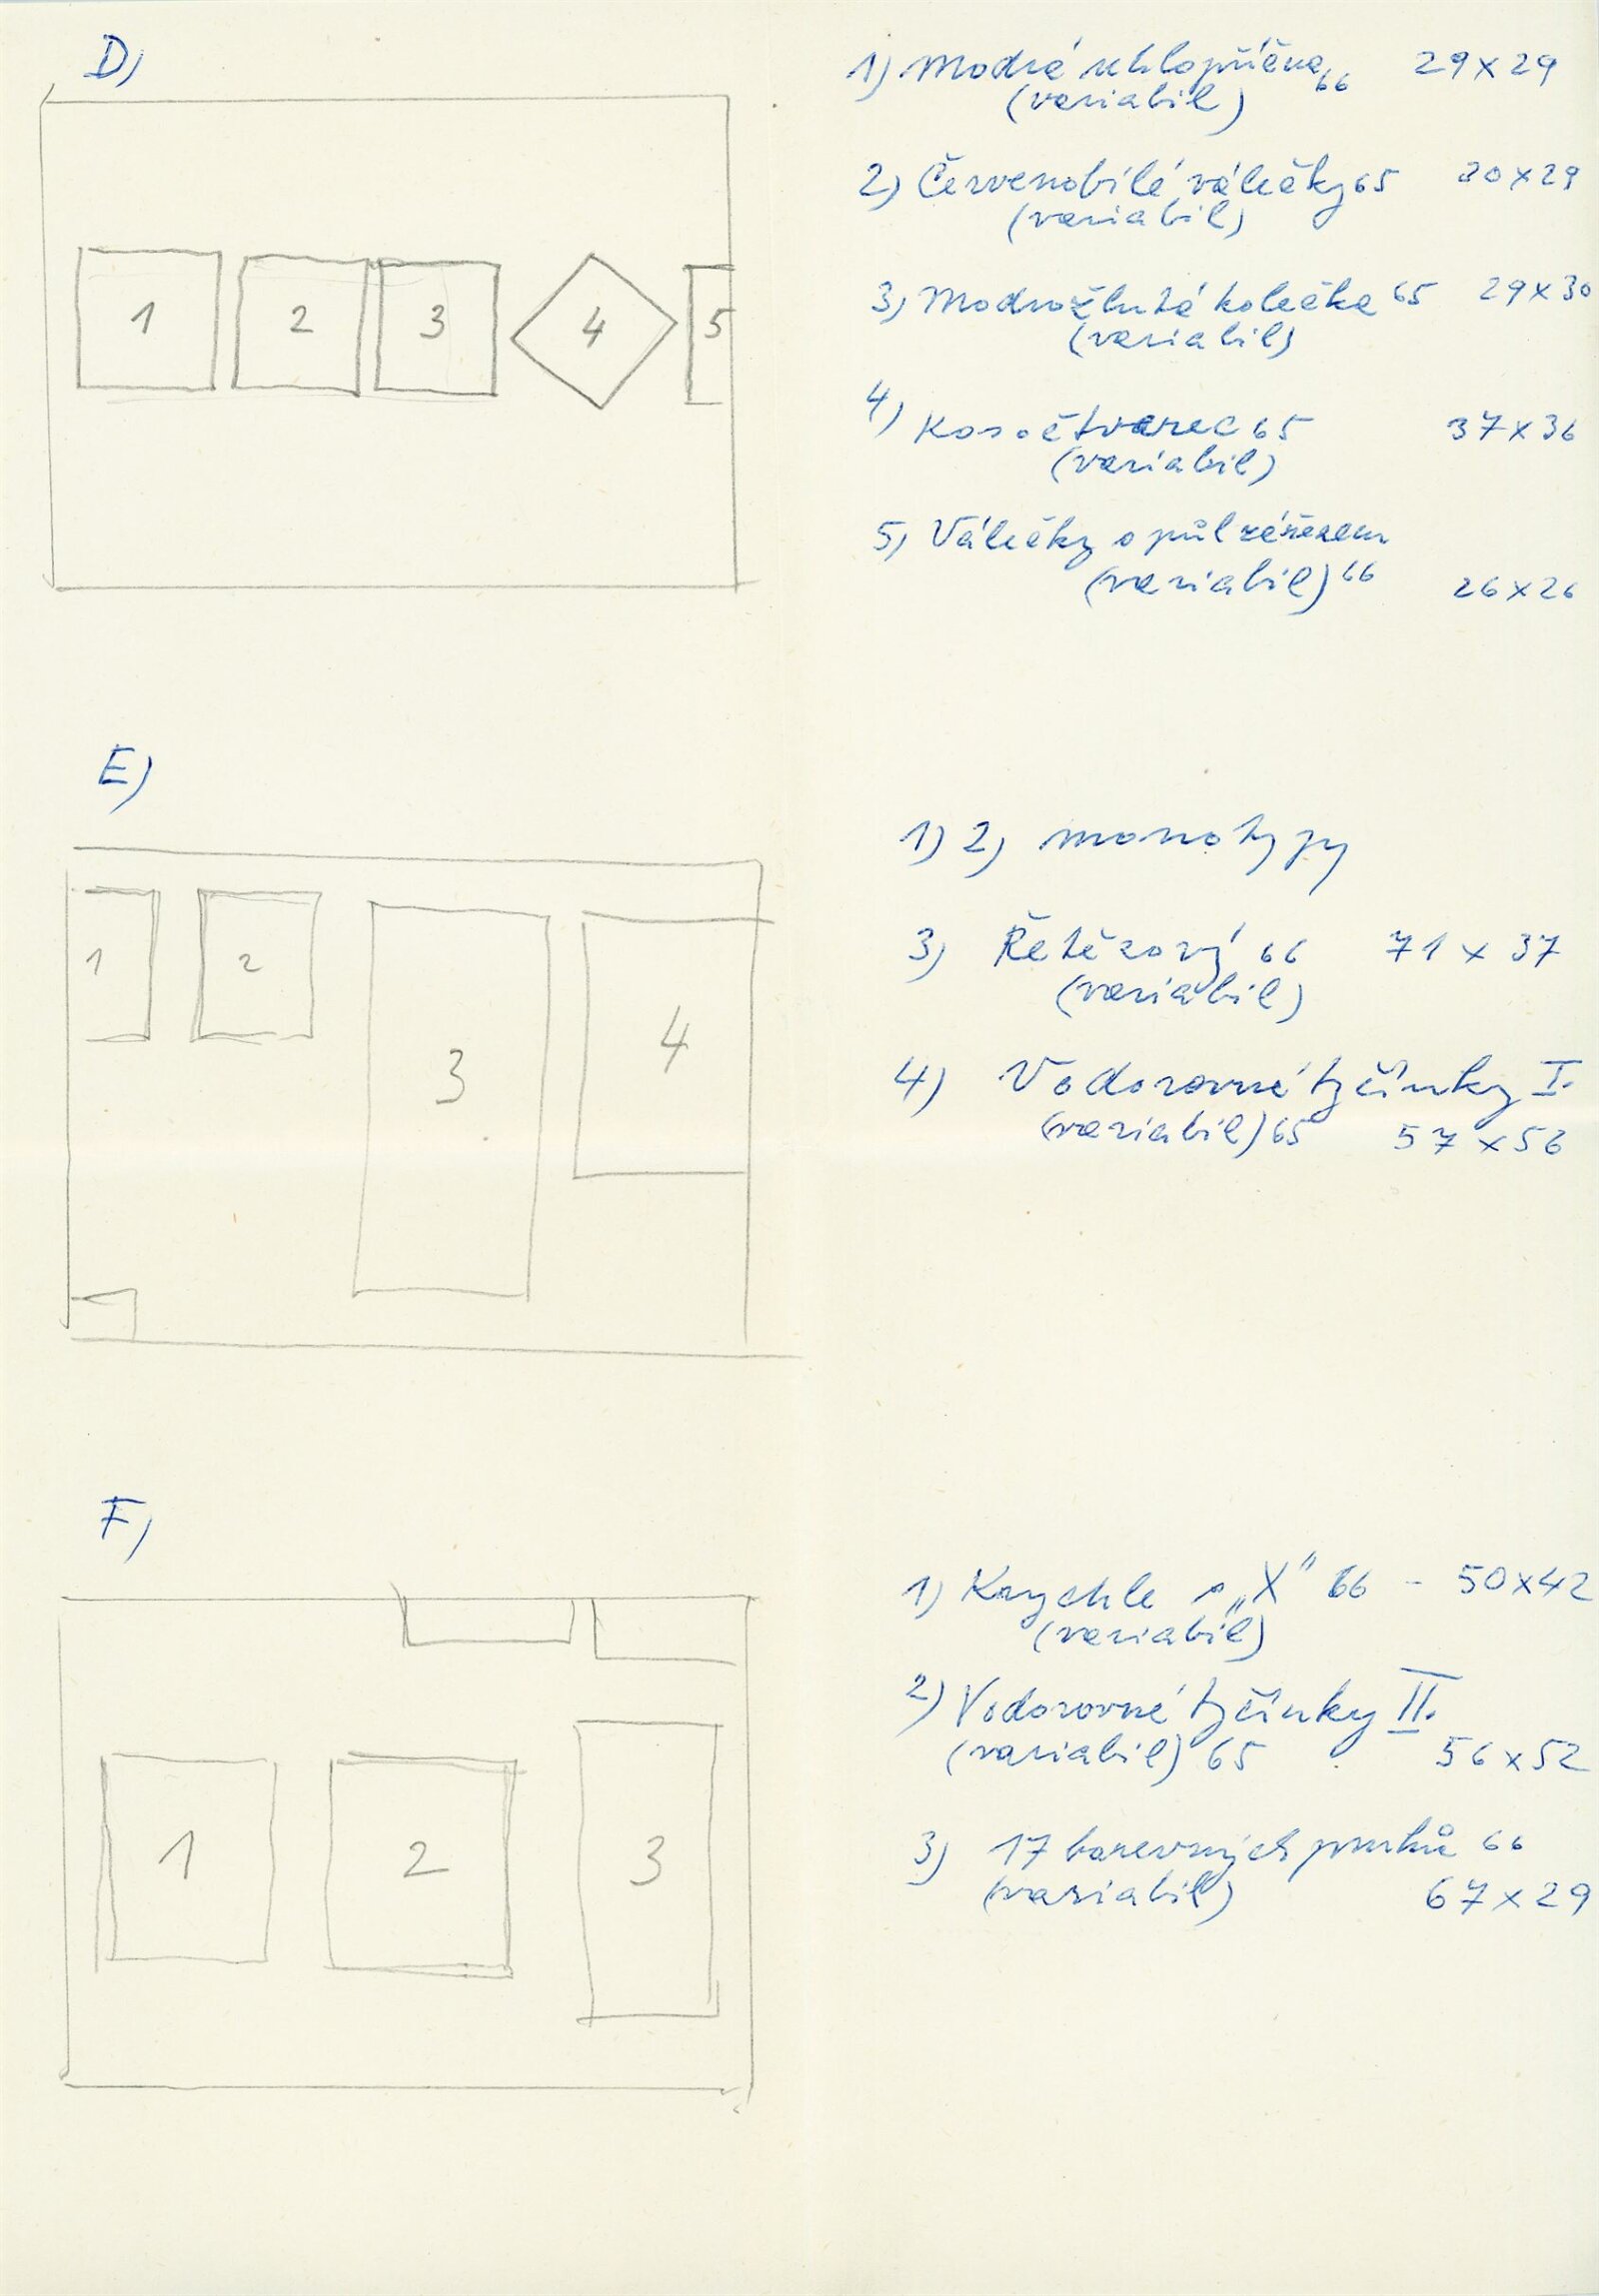 D)
1
2
3
4
5
1) Modrá úhlopříčna 66 29x29
(variabil)
2) Červenobílé válečky 65 30x29
(variabil)
3) Modrožlutá kolečka 65 29x30
(variabil)
4) Kosočtverec 65 37x36
(variabil)
5) Válečky s půl zářezem
(variabil) 66 26x26
E)
1
2
3
4
1) 2) monotypy
3) Řetězový 66 71x37
(variabil)
4) Vodorovné tyčinky I.
(variabil) 65 57x56
F)
1
2
3
1) Krychle s „X" 66 - 50x42
(variabil)
2) Vodorovné tyčinky II.
(variabil) 65 56x52
3) 17 barevných pruhů 66
(variabil) 67x29